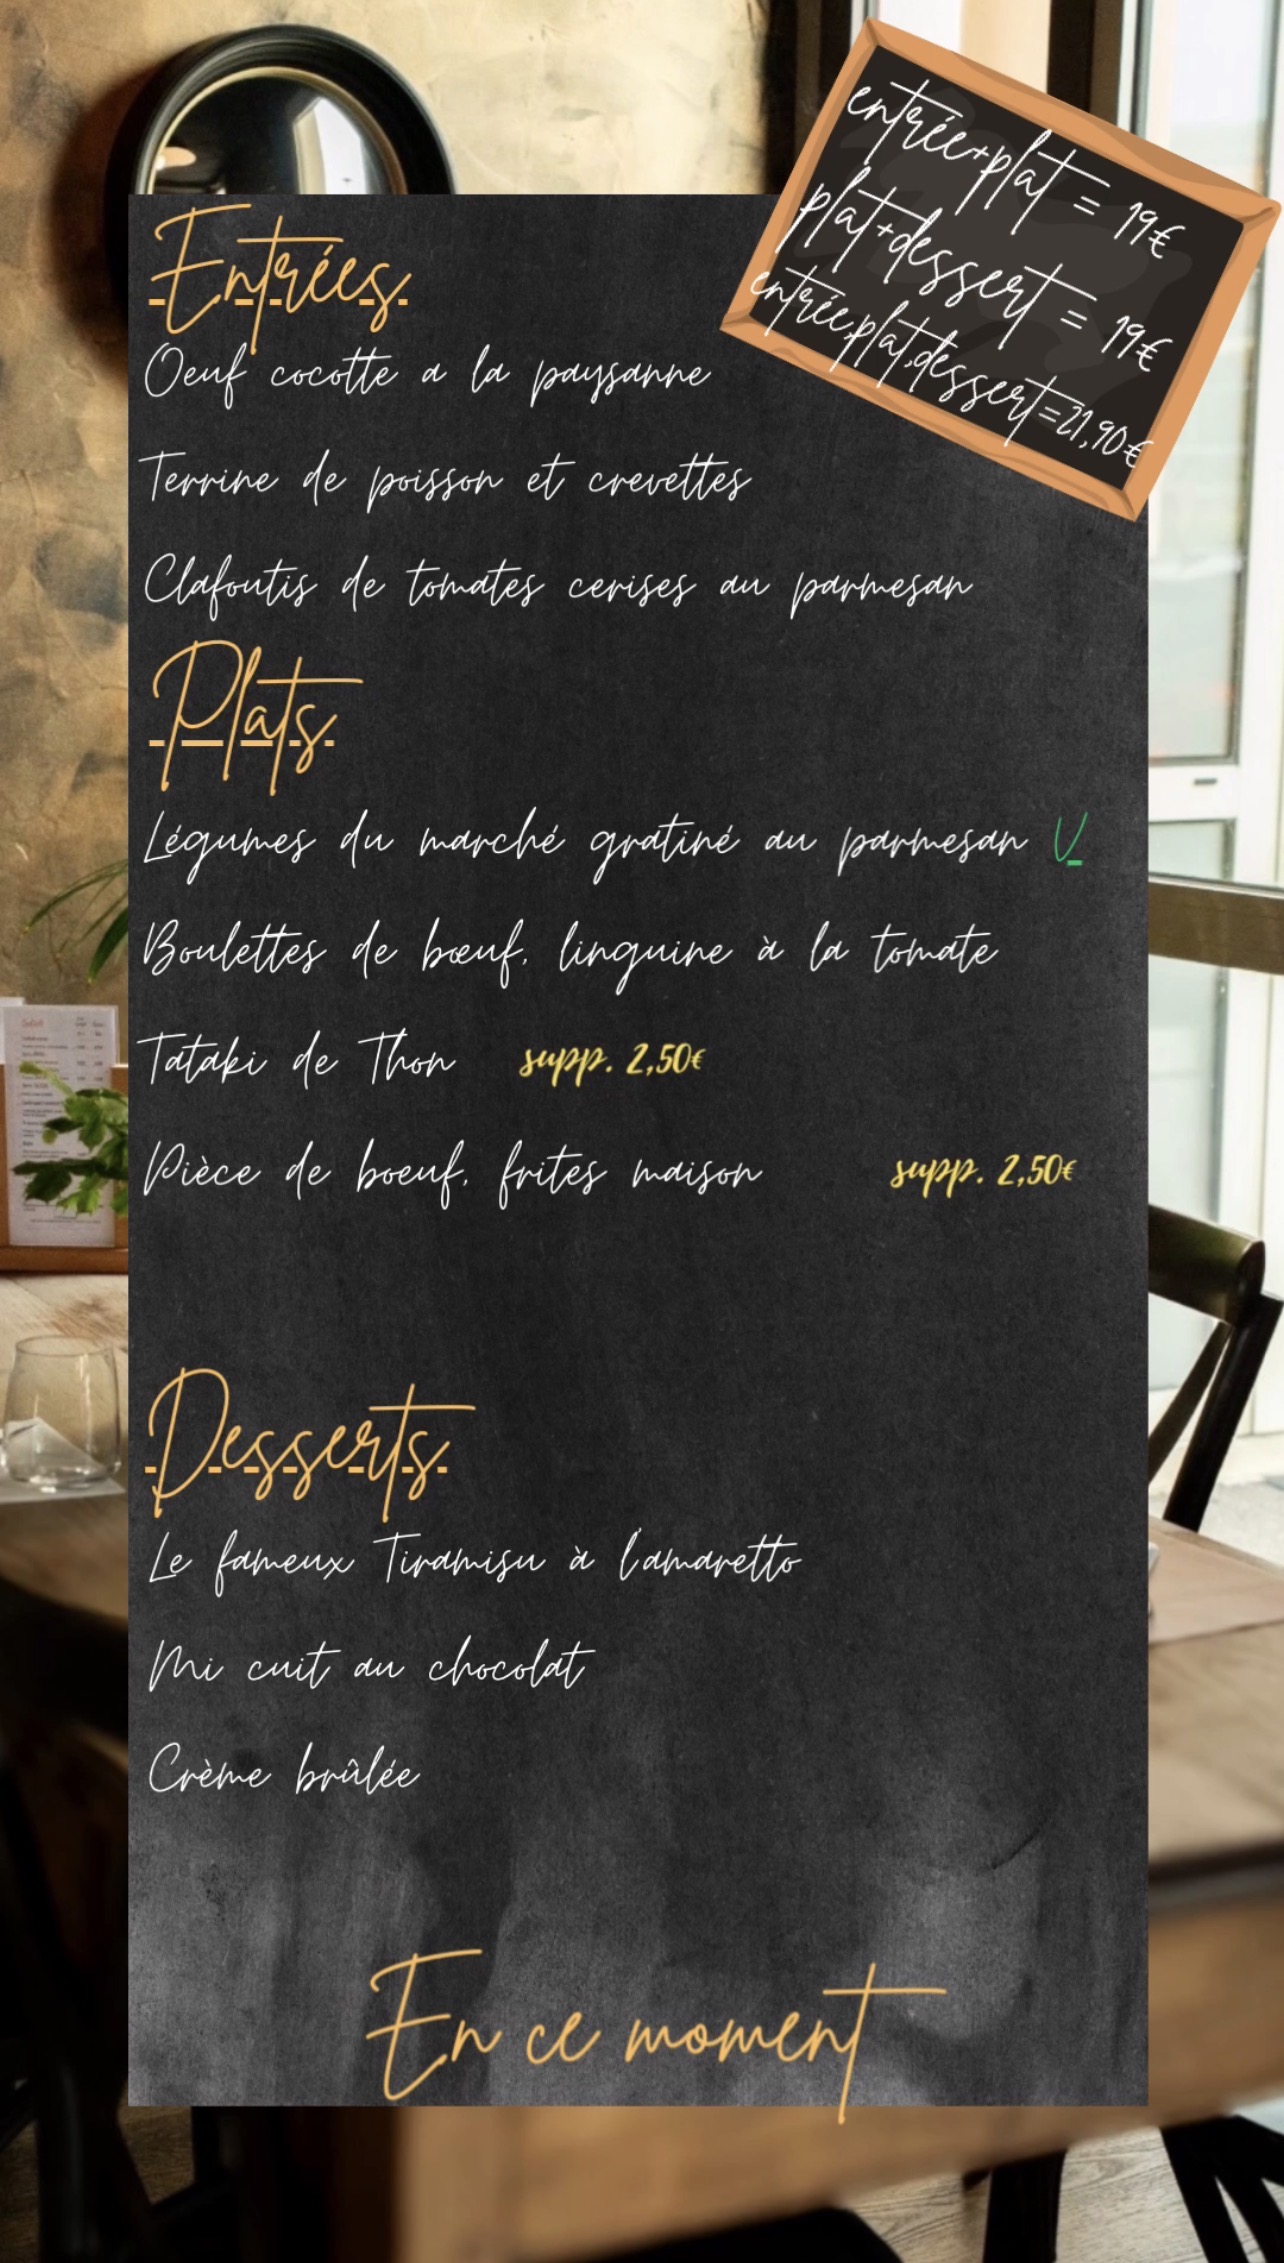 entrée+plat = 19€
plat+dessert = 19€
entrée,plat,dessert=21,90€
Entrées
Oeuf cocotte a la paysanne
Terrine de poisson et crevettes
Clafoutis de tomates cerises au parmesan
Plats
Légumes du marché gratiné au parmesan V
Boulettes de bœuf, linguine à la tomate
Tataki de Thon supp. 2,50€
Pièce de boeuf, frites maison supp. 2,50€
Desserts
Le fameux Tiramisu à l'amaretto
Mi cuit au chocolat
Crème brûlée
En ce moment